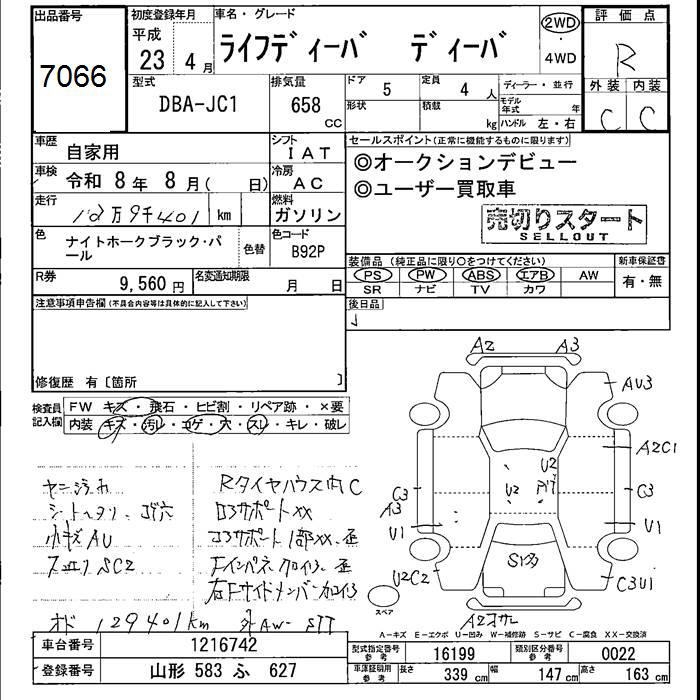 出品番号
7066
初度登録年月
平成
23 4月
車名・グレード
ライフディーバ ディーバ
2WD
・
4WD
評価点
R
外装 内装
C C
型式
DBA-JC1
排気量
658
CC
ドア 5
定員 4 人
形状
積載 kg
ディーラー・並行
モデル年式 年
ハンドル 左・右
車歴 自家用
シフト IAT
車検 令和 8年 8月( 日)
冷房 AC
走行 12万9千401 km
燃料 ガソリン
色 ナイトホークブラック・パール
色替
色コード B92P
R券 9,560円
名変通知期限 月 日
セールスポイント(正常に機能するものに限ります)
◎オークションデビュー
◎ユーザー買取車
売切りスタート
SELLOUT
装備品 (純正品に限り○をつけてください)
新車保証書
PS PW ABS エアB AW
有・無
SR ナビ TV カワ
後日品
注意事項申告欄(不具合内容等は具体的に記入して下さい)
修復歴 有〔箇所 〕
検査員記入欄
FW キズ・飛石・ヒビ割・リペア跡・×要
内装 キズ・汚レ・コゲ・穴・スレ・キレ・破レ
シートヘタリ、コゲ穴
小キズAU
スエリSC2
RタイヤハウスC
コアサポートXX
コアサポート1部XX、歪
Fインパネ加修、歪
右Fサイドメンバー加修
オド 129401km
A2 A3
AU3
A2C1
C3
A3
U1
U2
U2
C3
U1
U2C2
C3U1
スペア
A-キズ E-エクボ U-凹み W-補修跡 S-サビ C-腐食 XX-交換済
車台番号 1216742
登録番号 山形 583 ふ 627
型式指定番号 参考 16199
類別区分番号 参考 0022
車庫証明用 参考
長さ 339 cm
幅 147 cm
高さ 163 cm